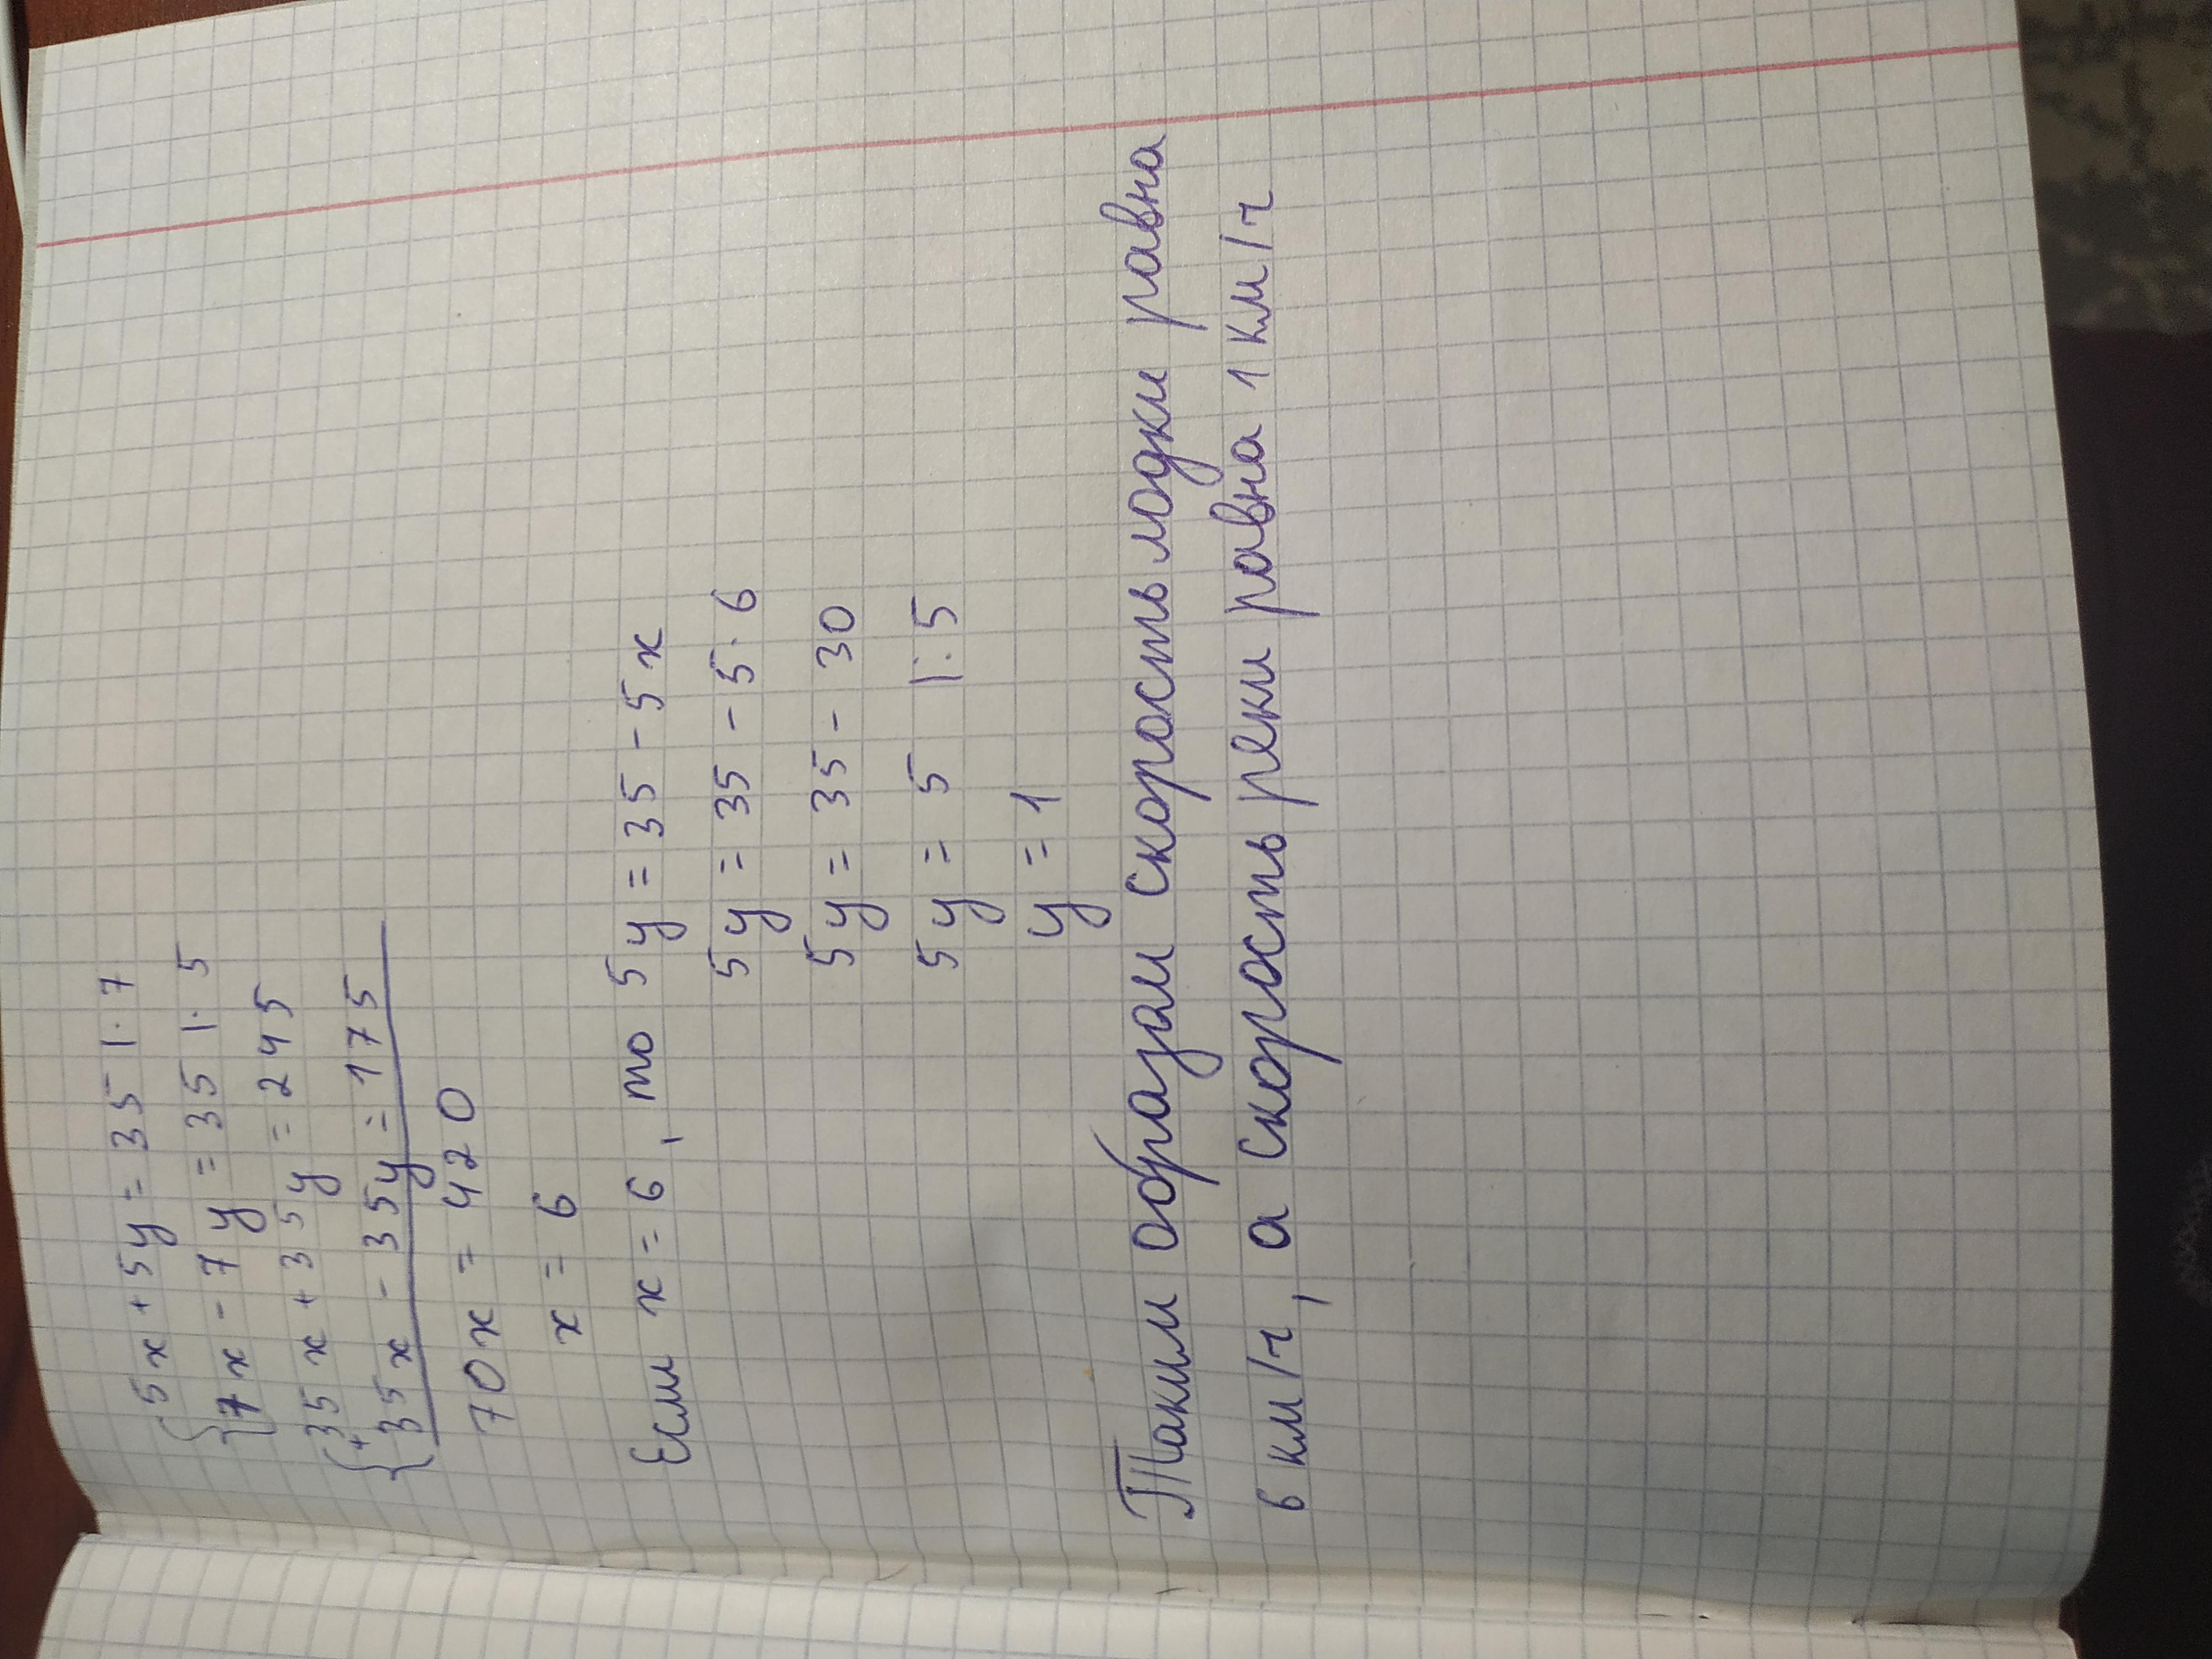 {5x + 5y = 35 |· 7
{7x - 7y = 35 |· 5
{35x + 35y = 245
+
{35x - 35y = 175
70x = 420
x = 6
Если x = 6, то 5y = 35 - 5x
5y = 35 - 5 · 6
5y = 35 - 30
5y = 5 |: 5
y = 1
Таким образам скорость лодки равна
6 км/ч, а скорость реки равна 1 км/ч